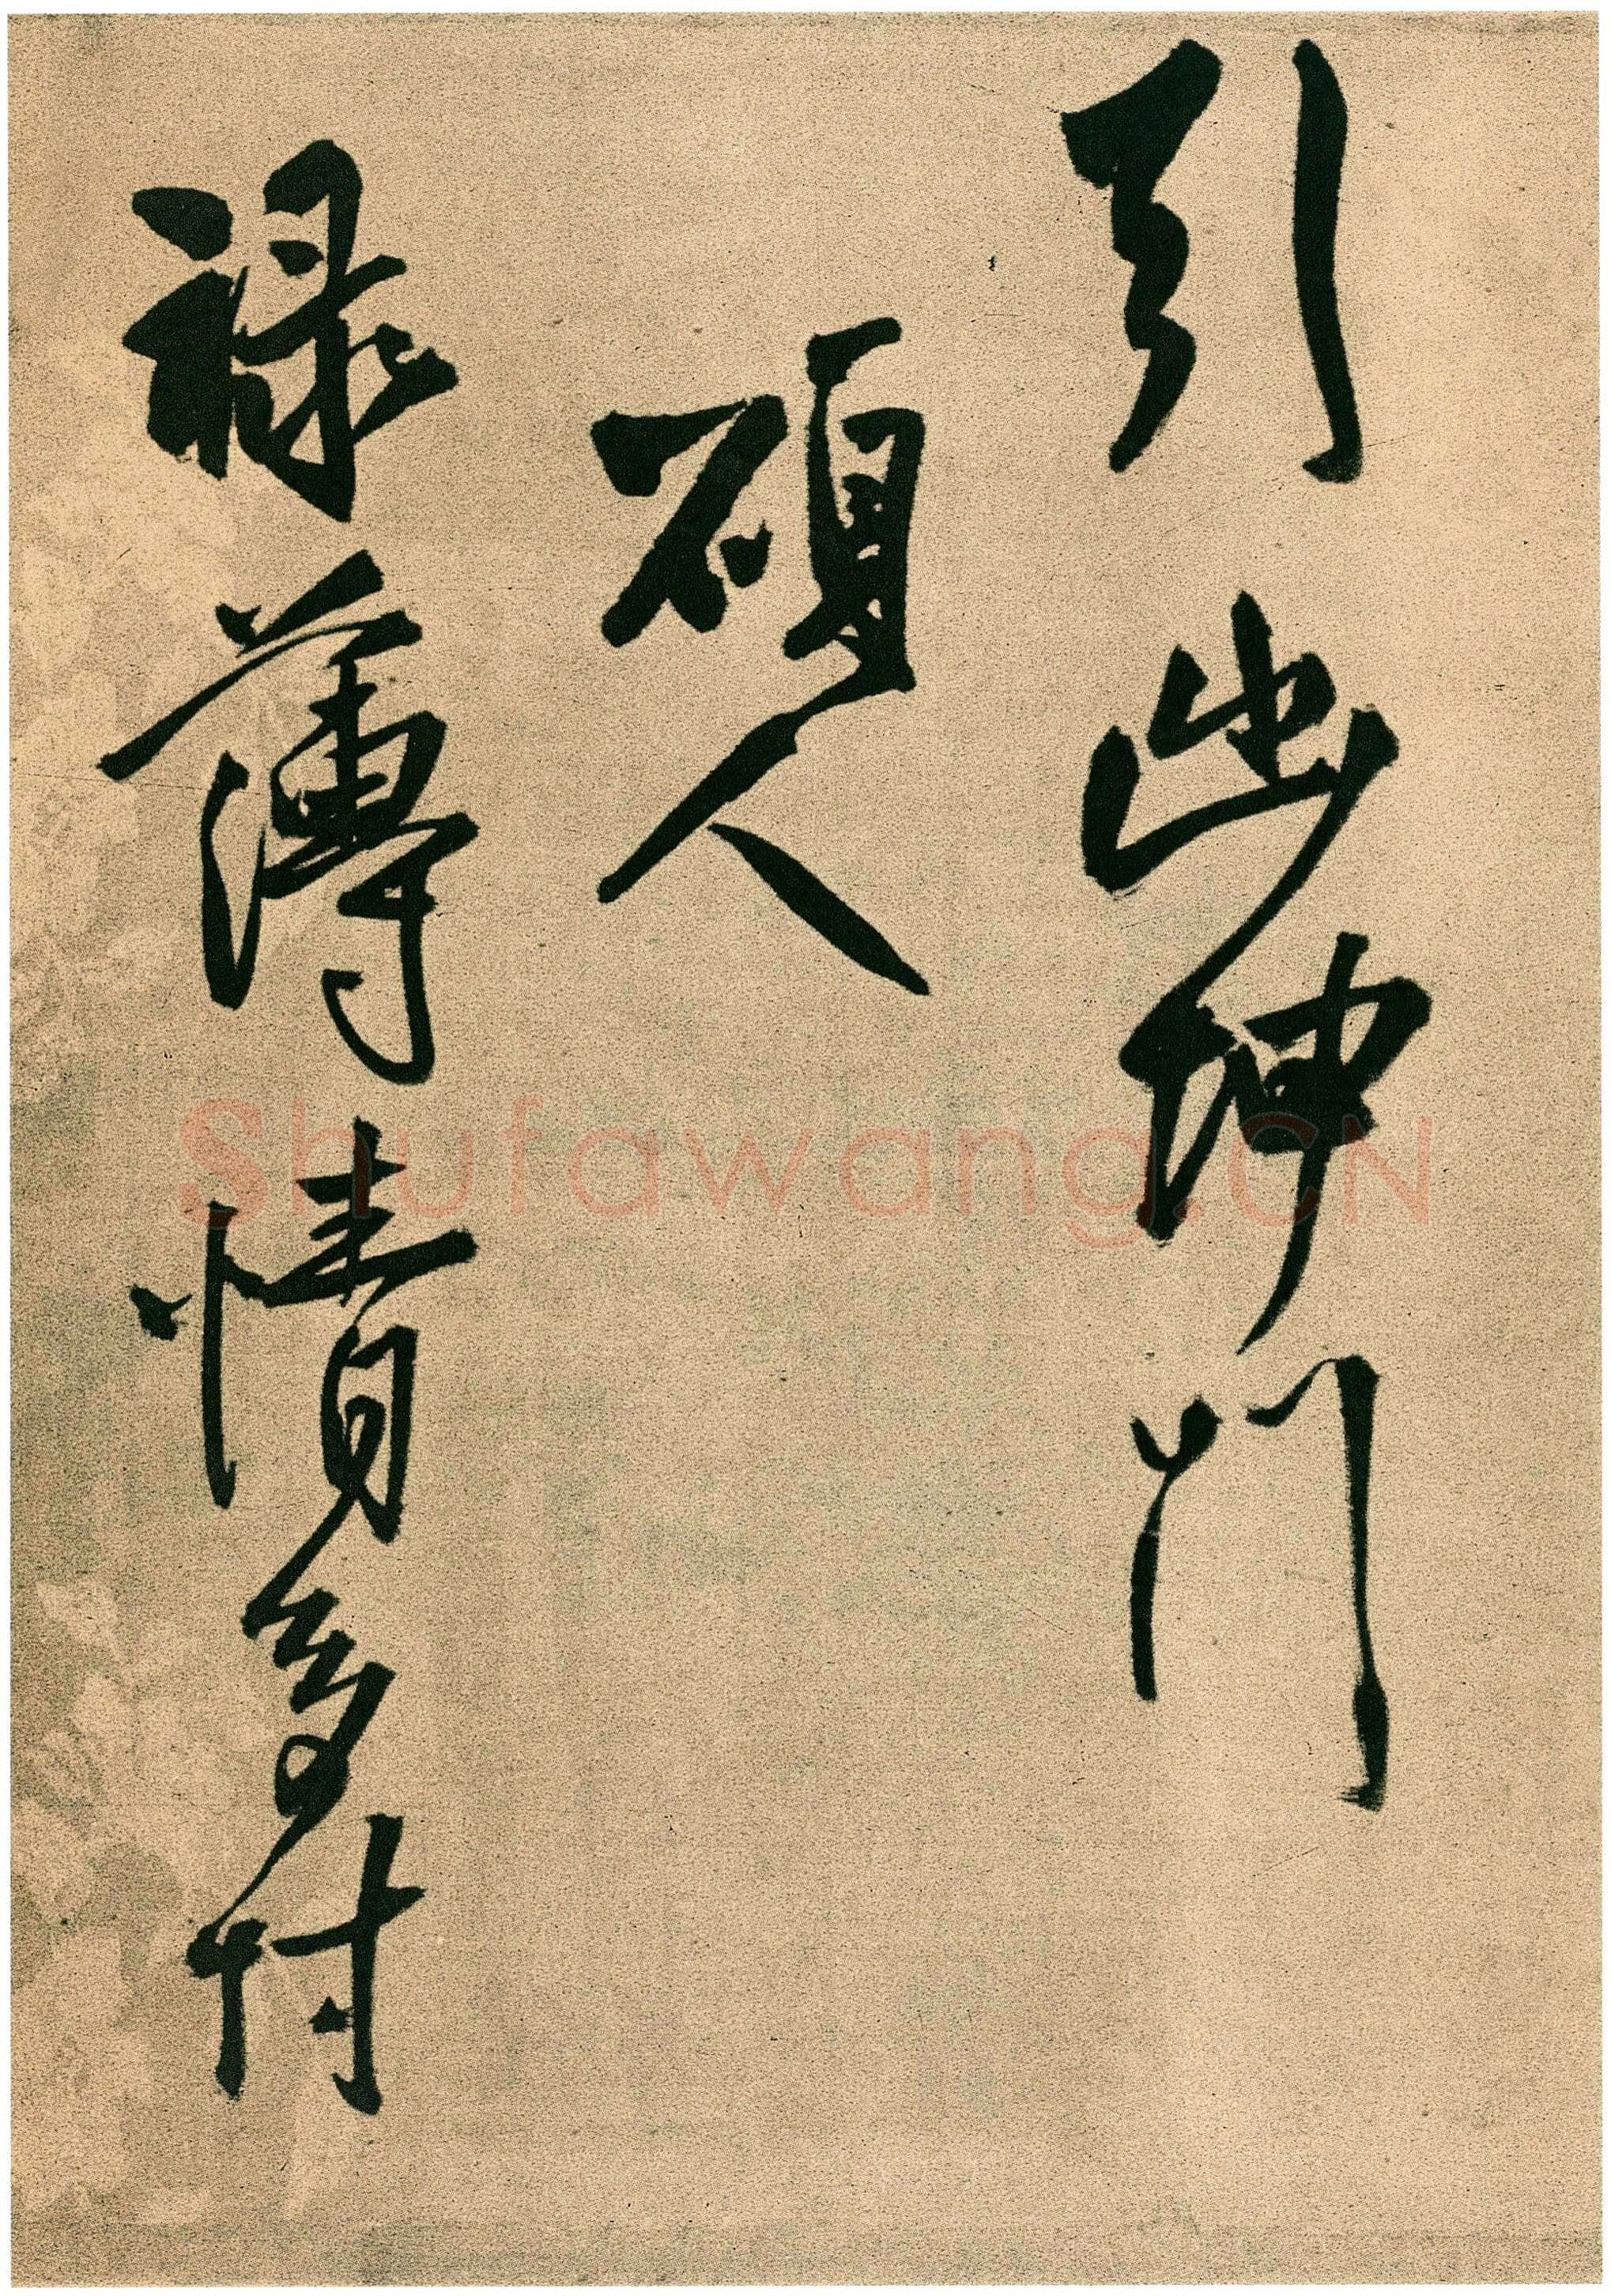 引 紳門
碩人
禄薄情多付
Shufawang.CN